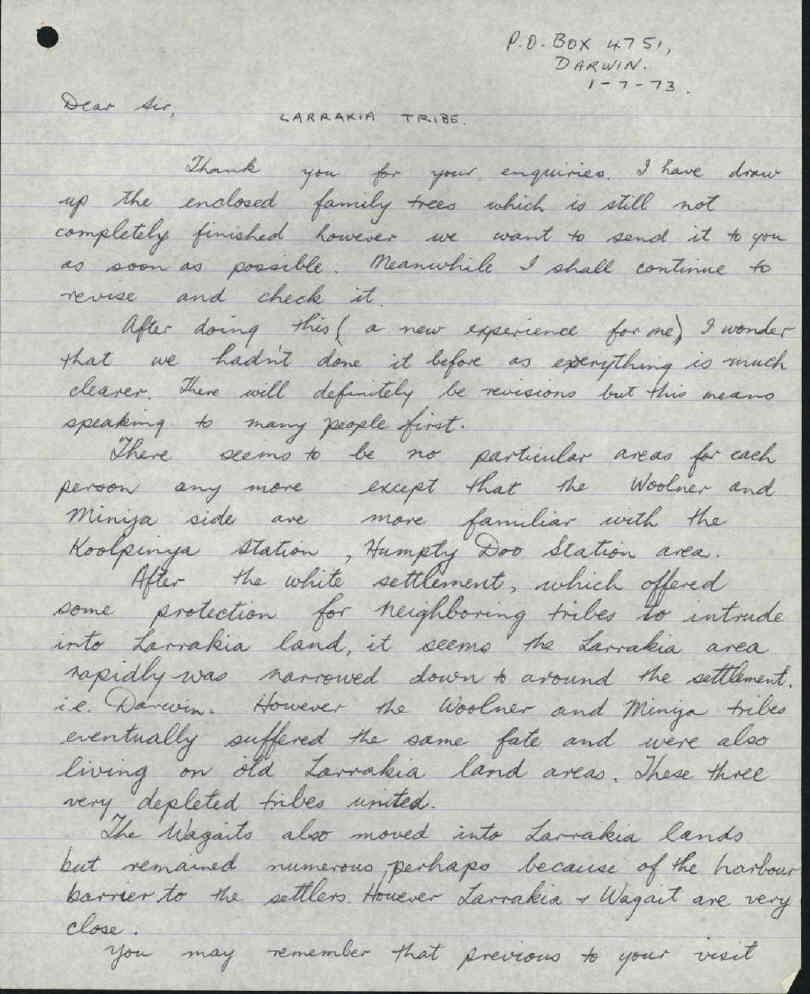 P.O. BOX 4751,
DARWIN.
1-7-73.
Dear Sir,
LARRAKIA TRIBE.
Thank you for your enquiries. I have draw
up the enclosed family trees which is still not
completely finished however we want to send it to you
as soon as possible. Meanwhile I shall continue to
revise and check it.
After doing this (a new experience for me) I wonder
that we hadn't done it before as everything is much
clearer. There will definitely be revisions but this means
speaking to many people first.
There seems to be no particular areas for each
person any more except that the Woolner and
Minija side are more familiar with the
Koolpinya Station, Humpty Doo Station area.
After the white settlement, which offered
some protection for neighboring tribes to intrude
into Larrakia land, it seems the Larrakia area
rapidly was narrowed down to around the settlement.
i.e. Darwin. However the Woolner and Minija tribes
eventually suffered the same fate and were also
living on old Larrakia land areas. These three
very depleted tribes united.
The Wagaits also moved into Larrakia lands
but remained numerous, perhaps because of the harbour
barrier to the settlers. However Larrakia & Wagait are very
close.
You may remember that previous to your visit